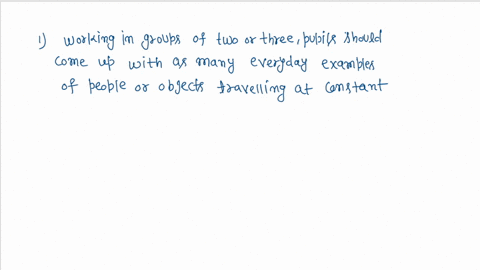 1) working in groups of two or three, pupils should
come up with as many everyday examples
of people or objects travelling at constant